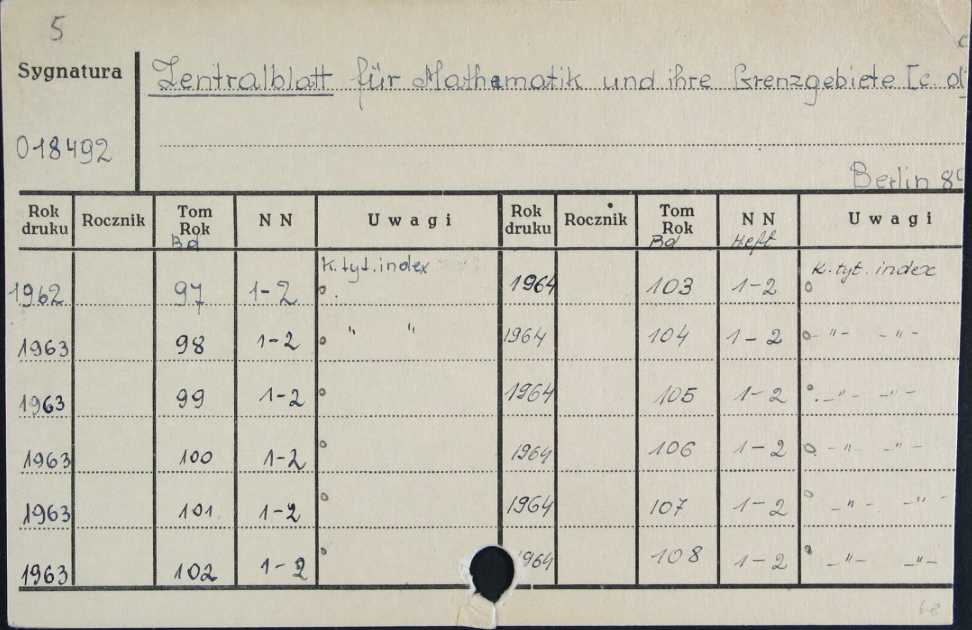 5
Sygnatura Zentralblatt für Mathematik und ihre Grenzgebiete [c. d
018492
Berlin 8
Rok druku Rocznik Tom Rok Bd N N Uwagi Rok druku Rocznik Tom Rok Bd N N Heft Uwagi
1962 97 1-2 K. tyt. index 1964 103 1-2 K. tyt. index
1963 98 1-2 " " 1964 104 1-2 -"- -"-
1963 99 1-2 1964 105 1-2 -"- -"-
1963 100 1-2 1964 106 1-2 -"- -"-
1963 101 1-2 1964 107 1-2 -"- -"-
1963 102 1-2 1964 108 1-2 -"- -"-